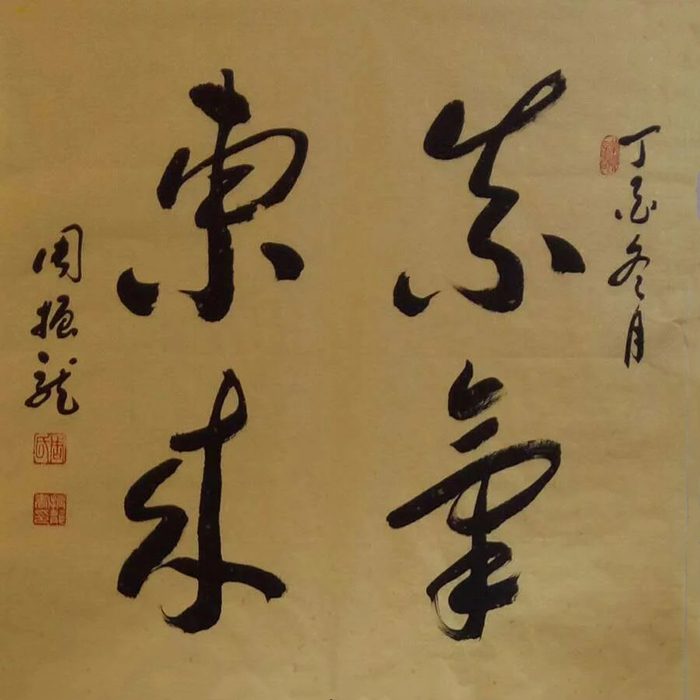 丁酉冬月
紫氣
東來
周振龍